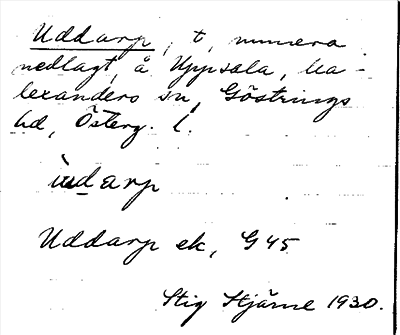 Uddarp, t, numera
nedlagt, å Uppsala, Ma-
lexanders sn, Göstrings
hd, Österg. l.
ùdarp
Uddarp ek, G 45
Stig Hjärne 1930.